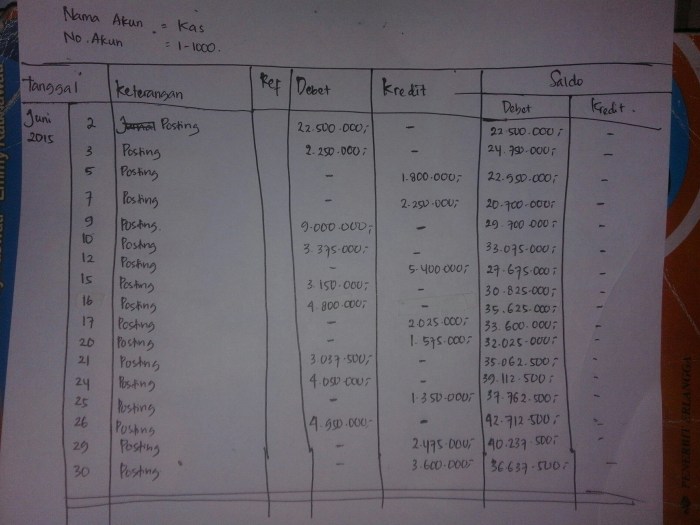 Nama Akun : Kas
No. Akun : 1-1000.
Tanggal Keterangan Ref Debet Kredit Saldo
Debet Kredit.
Juni 2015 2 Jurnal Posting 22.500.000,- - 22.500.000,- -
3 Posting 2.250.000,- - 24.750.000,- -
5 Posting - 1.800.000,- 22.950.000,- -
7 Posting - 2.250.000,- 20.700.000,- -
9 Posting. 9.000.000,- - 29.700.000,- -
10 Posting 3.375.000,- - 33.075.000,- -
12 Posting - 5.400.000,- 27.675.000,- -
15 Posting 3.150.000,- - 30.825.000,- -
16 Posting 4.800.000,- - 35.625.000,- -
17 Posting - 2.025.000,- 33.600.000,- -
20 Posting - 1.575.000,- 32.025.000,- -
21 Posting 3.037.500,- - 35.062.500,- -
24 Posting 4.050.000,- - 39.112.500,- -
25 Posting - 1.350.000,- 37.762.500,- -
26 Posting 4.950.000,- - 42.712.500,- -
29 Posting - 2.475.000,- 40.237.500,- -
30 Posting - 3.600.000,- 36.637.500,- -
PENERBIT ERLANGGA